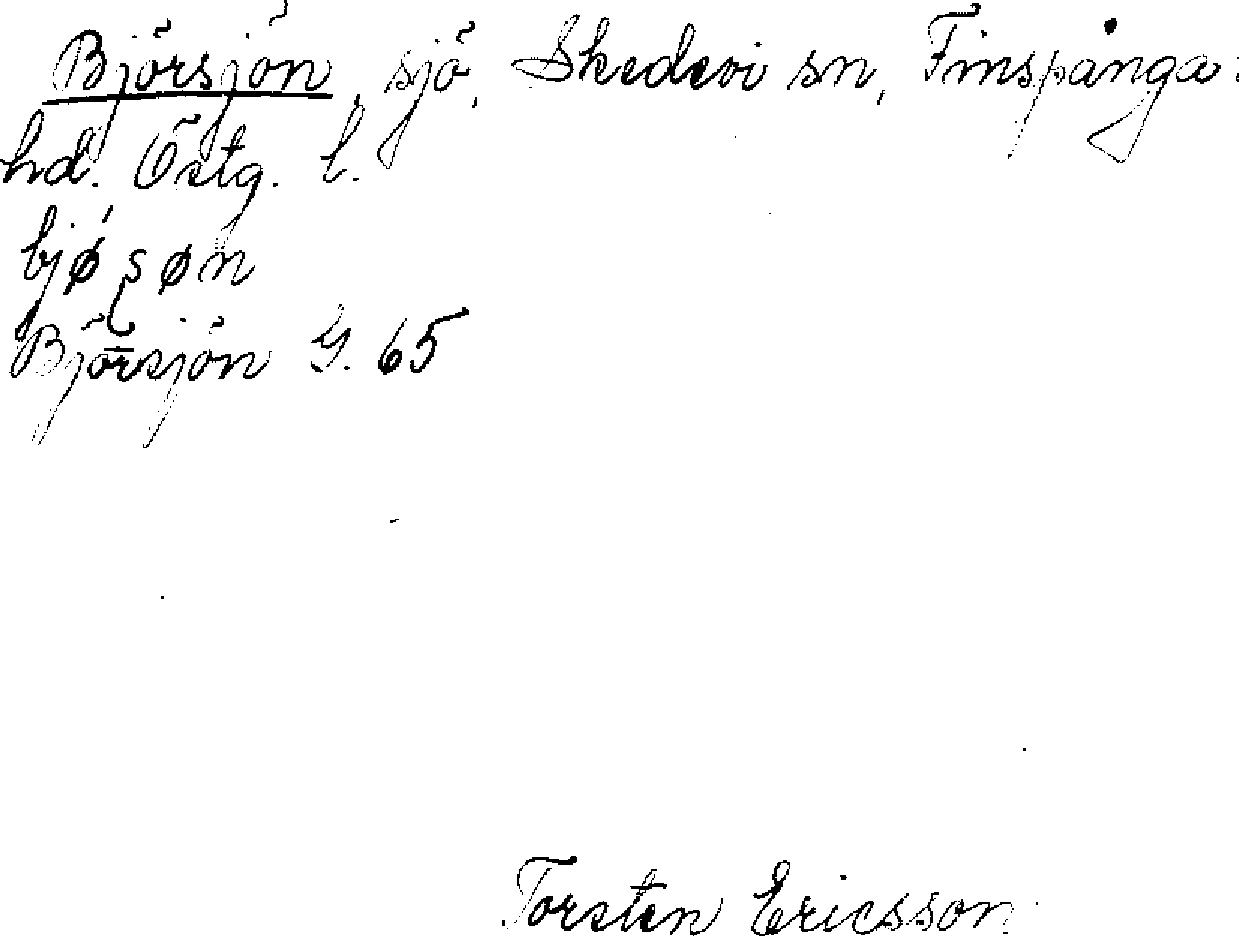 Björsjön, sjö, Skedevi sn, Finspånga
hd. Östg. l.
bjǿʂøn
Björsjön G. 65
Torsten Ericsson